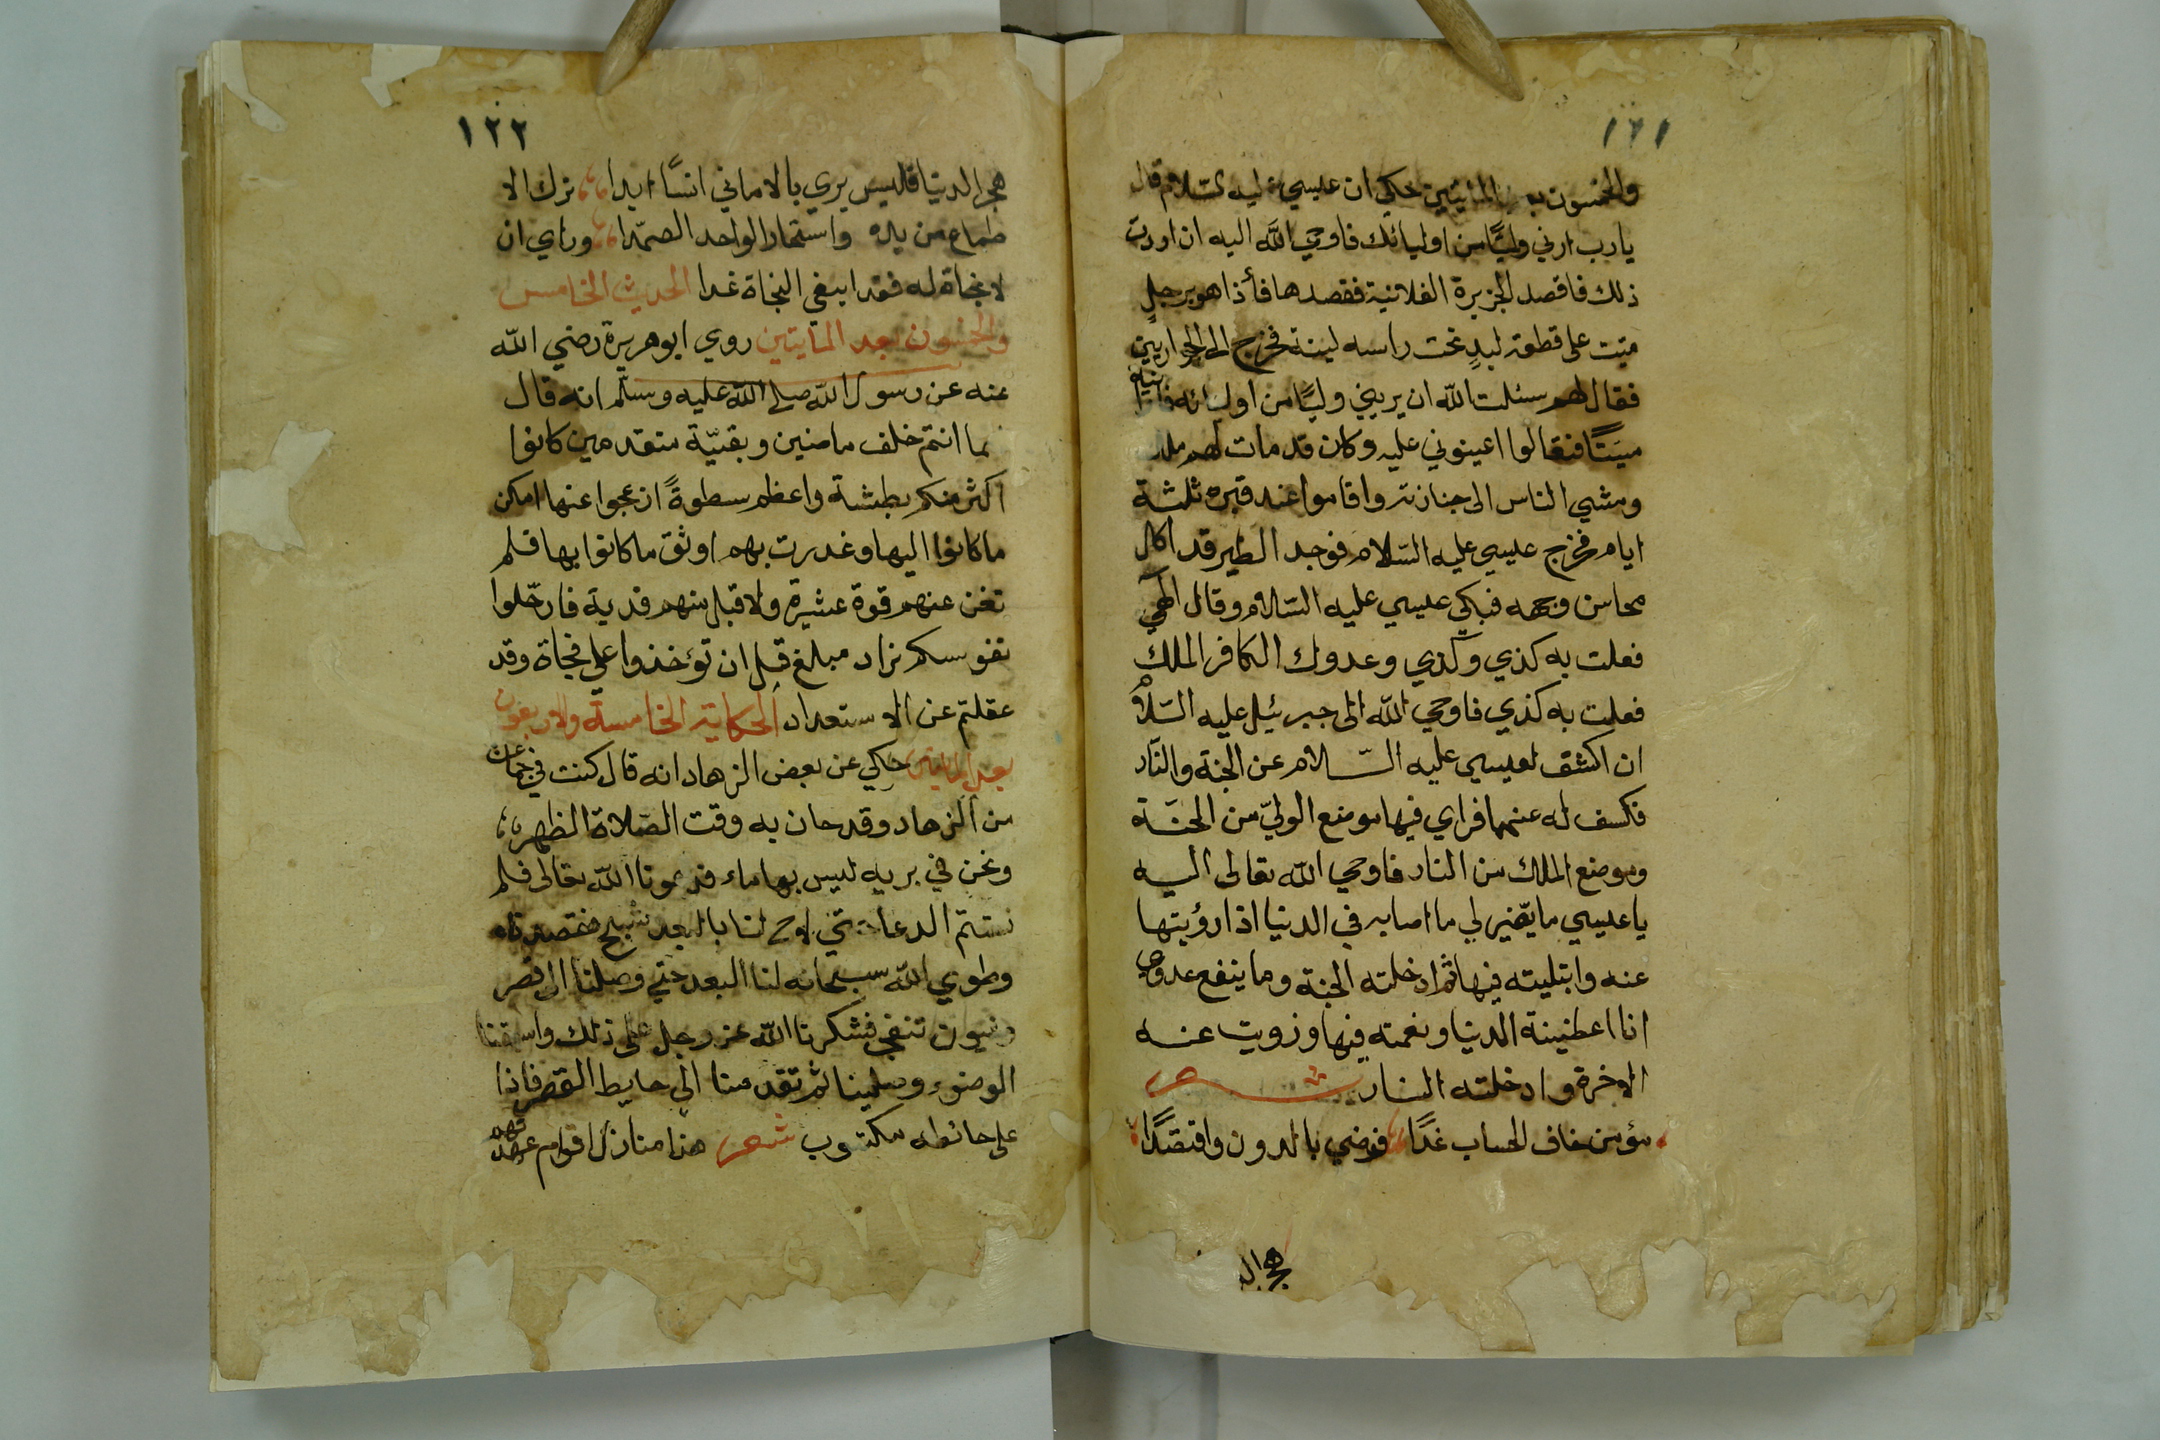 ١٢١
والخمسون بعد المايتين حكي ان عيسي عليه السلام قال
يا رب ارني وليًّا من اوليائك فاوحي الله اليه ان اردت
ذلك فاقصد الجزيرة الفلانية فقصدها فأذا هو برجلٍ
ميّت على قطعة لبدٍ تحت راسه لبنة فخرج الى الحواريين
فقال لهم سئلت الله ان يريني وليًّا من اوليائه فارانيه
ميتًا فقالوا اعينوني عليه وكان قد مات لهم ملك
ومشي الناس الى جنازته واقاموا عند قبره ثلثة
ايام فخرج عيسي عليه السّلام فوجد الطير قد اكل
محاسن وجهه فبكي عيسي عليه السّلام وقال آلهي
فعلت به كذي وكذي وعدوك الكافر الملك
فعلت به كذي فاوحي الله الى جبرئيل عليه السّلام
ان اكشف لعيسي عليه السّلام عن الجنة والنّار
فكسف له عنهما فراي فيها موضع الوليّ من الجنّة
وموضع الملك من النار فاوحي الله تعالى اليه
يا عيسي ما يضير لي ما اصابه في الدنيا اذا رؤيتها
عنه وابتليته فيها ثم ادخلته الجنة وما ينفع عدوي
انا اعطنيتة الدنيا ونعمته فيها وزويت عنه
الاخرة وادخلته النار شعر
مؤمن خاف الحساب غدًا فرضي بالدون واقتصدًا
هجر الد
١٢٢
هجر الدنيا فليس يري بالاماني انسًا ابدا ترك الا
طماع من يده واستخار الواحد الصمّدا وراي ان
لا نجاة له فغدا يبغي النجاة غدا الحديث الخامس
والخمسون بعد المايتين روي ابو هريرة رضي الله
عنه عن رسول الله صلي الله عليه وسلّم انه قال
نما انتم خلف ماضين وبقيّة متقدمين كانوا
اكثر منكم بطشة واعظم سطوةً ازعجوا عنها امكن
ما كانوا اليها وغدرت بهم اوثق ما كانوا بها فلم
تغن عنهم قوة عشيرة ولا قبل منهم فدية فارحّلوا
نفوسكم بزاد مبلغ قبل ان تؤخذوا على فجاة وقد
عقلتم عن الاستعداد الحكاية الخامسة والاربعون
بعد المايتين حكي عن بعض الزهاد انه قال كنت في جماعة
من الزهاد وقد حان به وقت الصّلاة الظهر
ونحن في بريه ليس بها ماء فدعونا الله تعالى فلم
نستتم الدعا حتي لاح لنا بالبعد شبح فقصدناه
وطوي الله سبحانه لنا البعد حتي وصلنا الى قصر
وعيون تنفجر فشكرنا الله عز وجل على ذلك واسبقنا
الوضوء وصلينا ثم تقدمنا الي حايط القصر فاذا
على حائطه مكتوب شعر هذا منازل اقوام عهدتهم